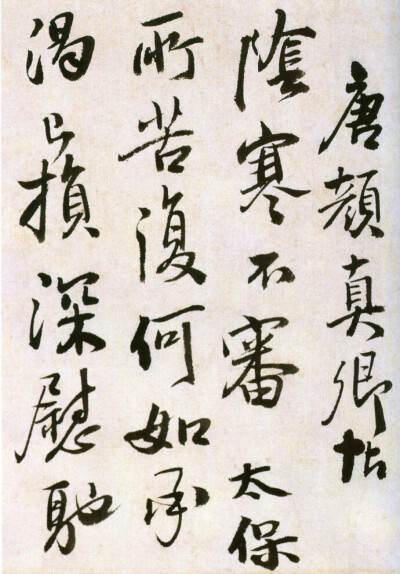 唐顔真卿帖
陰寒不審太保
所苦復何如承
渴已損深慰馳